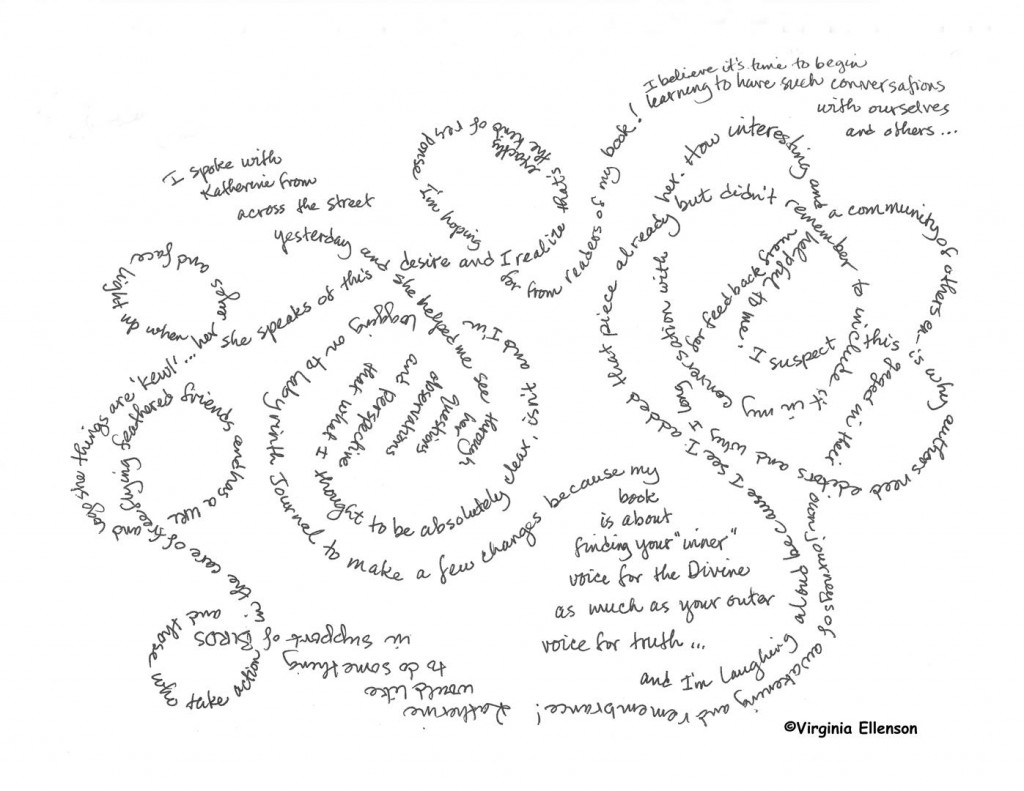 I spoke with
Katherine from
across the street
yesterday and she helped me see through
her
questions
observations
and perspective
that what I thought to be absolutely clear, isn't and I'm
logging on to Labyrinth Journal to make a few changes because my
book
is about
finding your "inner"
voice for the Divine
as much as your outer
voice for truth ...
and I'm laughing aloud because I see I added that piece already but didn't remember to include it in my
conversation with her. How interesting and
helpful to me. I suspect this is why authors need editors and why I long for feedback from
a community of others en-
gaged in their own journeys of awakening and remembrance!
Katherine
would like
to do something
in support of BIRDS and those who take action
in the care of free flying feathered friends and has a URL
and logo she things are 'kewl' ... her eyes and face light up when
she speaks of this desire and I realize that's exactly the kind of response I'm hoping
for from readers of my book!
I believe it's time to begin
learning to have such conversations
with ourselves
and others ...
©Virginia Ellenson